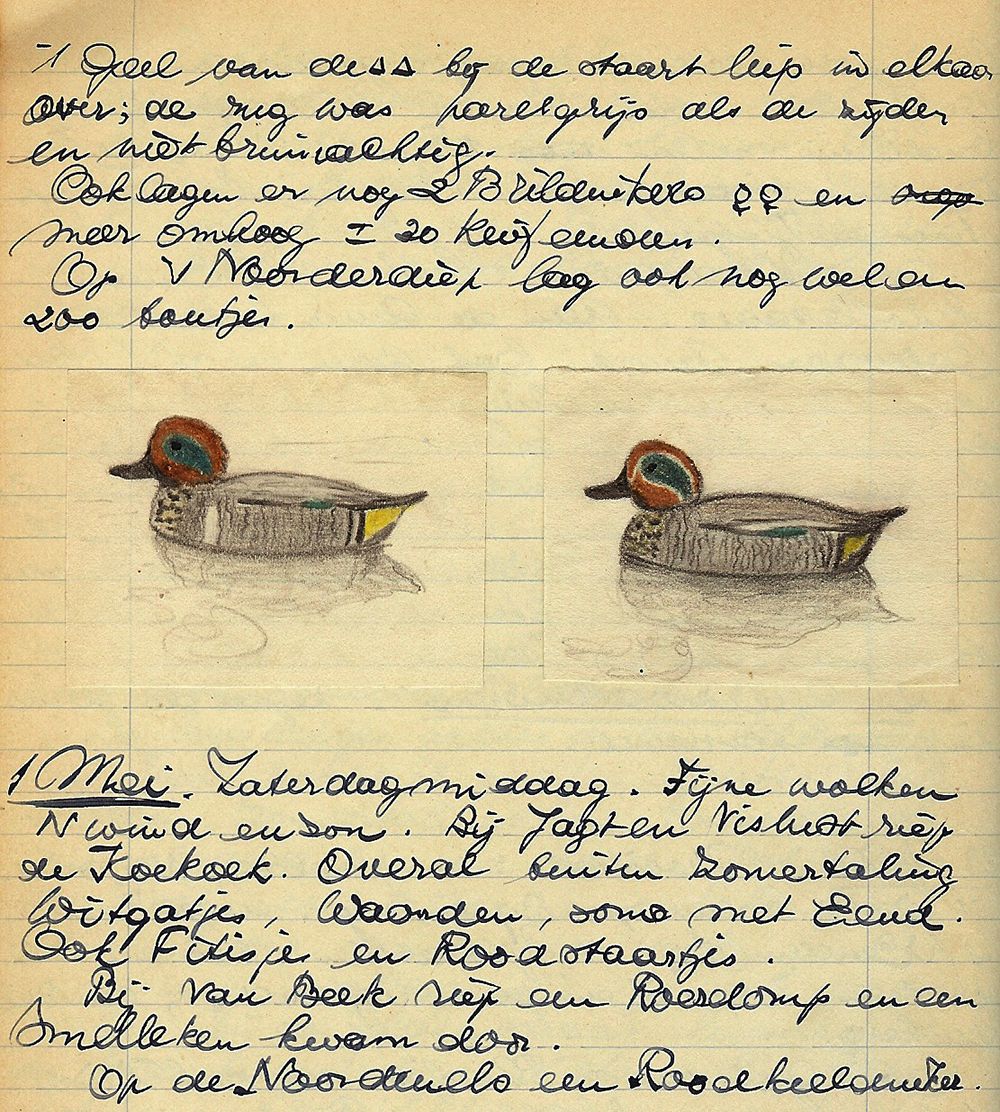 Geel van de ▵▵ bij de staart liep in elkaar
over; de rug was parelgrijs als de zijden
en niet bruinachtig.
Ook lagen er nog 2 Brilduikers ♀♀ en
meer omhoog ± 20 Kuifeenden.
Op 't Noorderdiep lag ook nog wel een
200 bontjes.
1 Mei. Zaterdagmiddag. Fijne wolken
N wind en zon. Bij Jagt en Vislust riep
de Koekoek. Overal buiten zomertaling
Witgatjes, Woerden, soms met Eend.
Ook Fitisjes en Roodstaartjes.
Bij Van Beek riep een Roerdomp en een
Smelleken kwam door.
Op de een Roodkeelduiker.